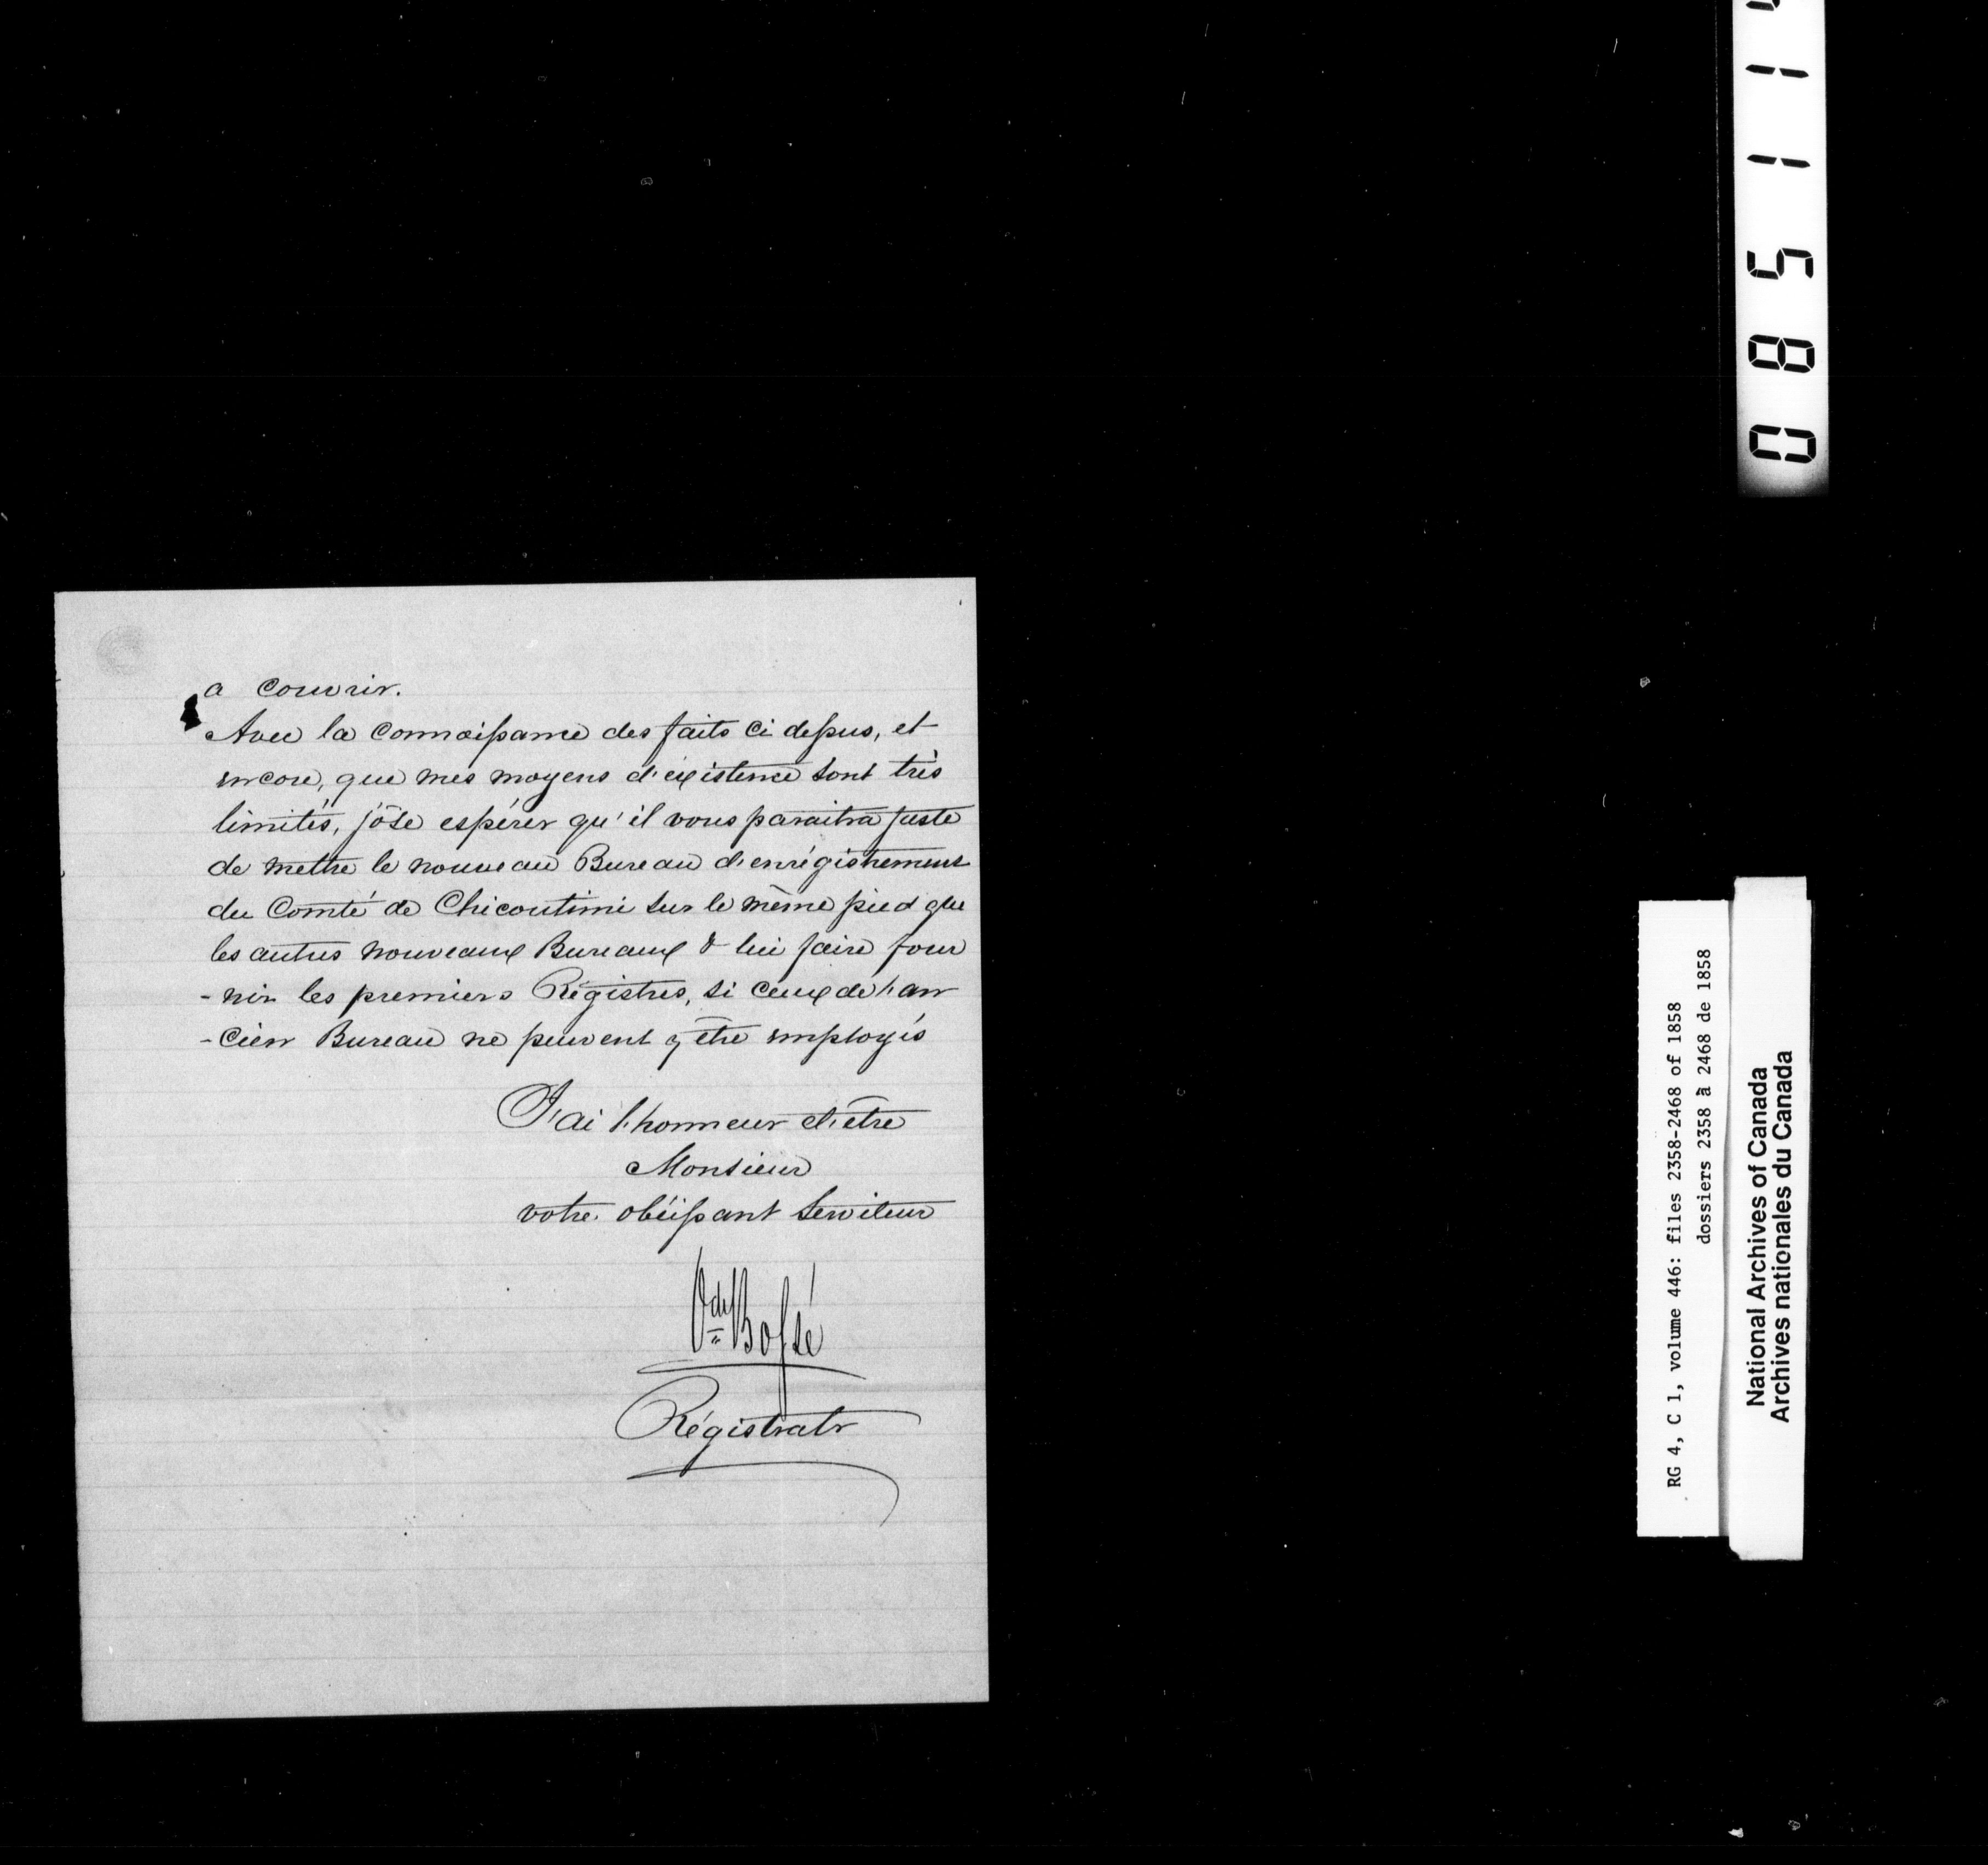 a couvrir.
Avec la connaissance des faits ci dessus, et
encore, que mes moyens d'existence sont très
limités, j'ôse espérer qu'il vous paraitra juste
de mettre le nouveau Bureau d'enrégistrement
du Comté de Chicoutimi sur le même pied que
les autres nouveaux Bureaux & lui faire four
- nir les premiers Régistres, si ceux de l'an
- cien Bureau ne peuvent y être employés
J'ai l'honneur d'être
Monsieur
votre obéissant Serviteur
Bossé
Régistratr
08511
RG 4, C 1, volume 446: files 2358-2468 of 1858
dossiers 2358 à 2468 de 1858
National Archives of Canada
Archives nationales du Canada